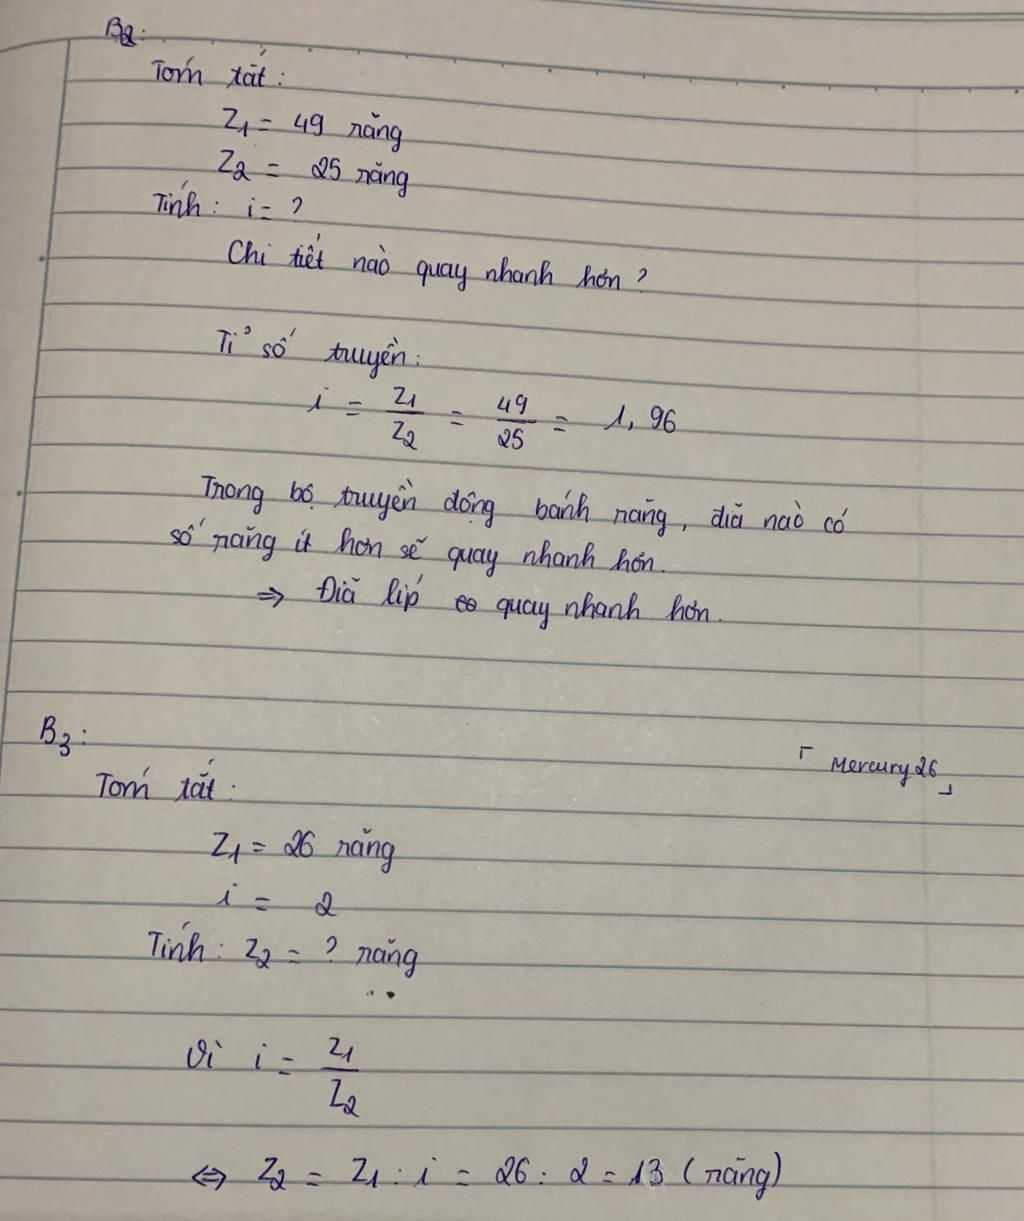 B2:
Tóm tắt:
Z1 = 49 răng
Z2 = 25 răng
Tính: i = ?
Chi tiết nào quay nhanh hơn?
Tỉ số truyền:
i = Z1/Z2 = 49/25 = 1,96
Trong bộ truyền động bánh răng, đĩa nào có
số răng ít hơn sẽ quay nhanh hơn.
⇒ Đĩa líp quay nhanh hơn.
B3:
「 Mercury26 」
Tóm tắt:
Z1 = 26 răng
i = 2
Tính: Z2 = ? răng
Vì i = Z1/Z2
⇔ Z2 = Z1 : i = 26 : 2 = 13 (răng)